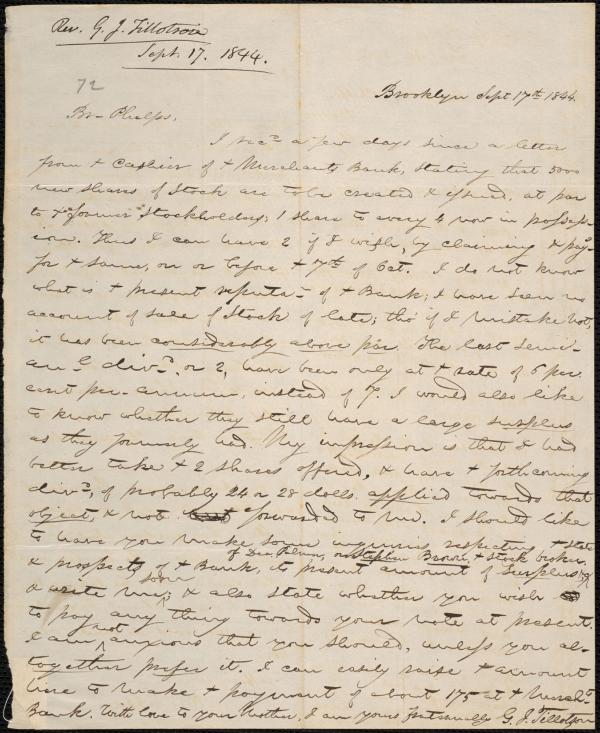 Rev. G. J. Tillotson
Sept. 17. 1844.
72
Brooklyn Sept 17th 1844.
Br. Phelps.
I rec'd a few days since a letter
from + Cashier of + Merchants Bank, stating that 5000
new shares of Stock are to be created & issued, at par
to + former Stockholders; 1 share to every 4 now in possess-
ion. Thus I can have 2 if I wish, by claiming & pay'g
for + same, on or before + 7th of Oct. I do not know
what is + present reputa- of + Bank; I have seen no
account of sale of Stock of late; tho' if I mistake not,
it has been considerably above par. The last semi-
an-l div'd, or 2, have been only at + rate of 6 per
cent per-annum, instead of 7. I would also like
to know whether they still have a large surplus
as they formerly had. My impression is that I had
better take + 2 shares offered, & have + forthcoming
div'd, of probably 24 or 28 dolls. applied towards that
object, & not forwarded to me. I should like
to have you make some inquiries respecting + state
of Dea. or Stephen Brown + Stock broker,
& prospects of + Bank, its present amount of Surplus &c
& write me soon; & also state whether you wish
to pay any thing towards your note at present.
I am not anxious that you should, unless you al-
together prefer it. I can easily raise + amount
here to make + payment of about 175 at + Merch-ts
Bank. With love to your Mother, I am yours fraternally G. J. Tillotson